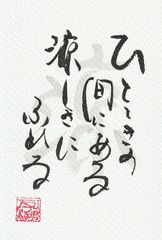 ひとときの
間にある
涼しさに
ふれる